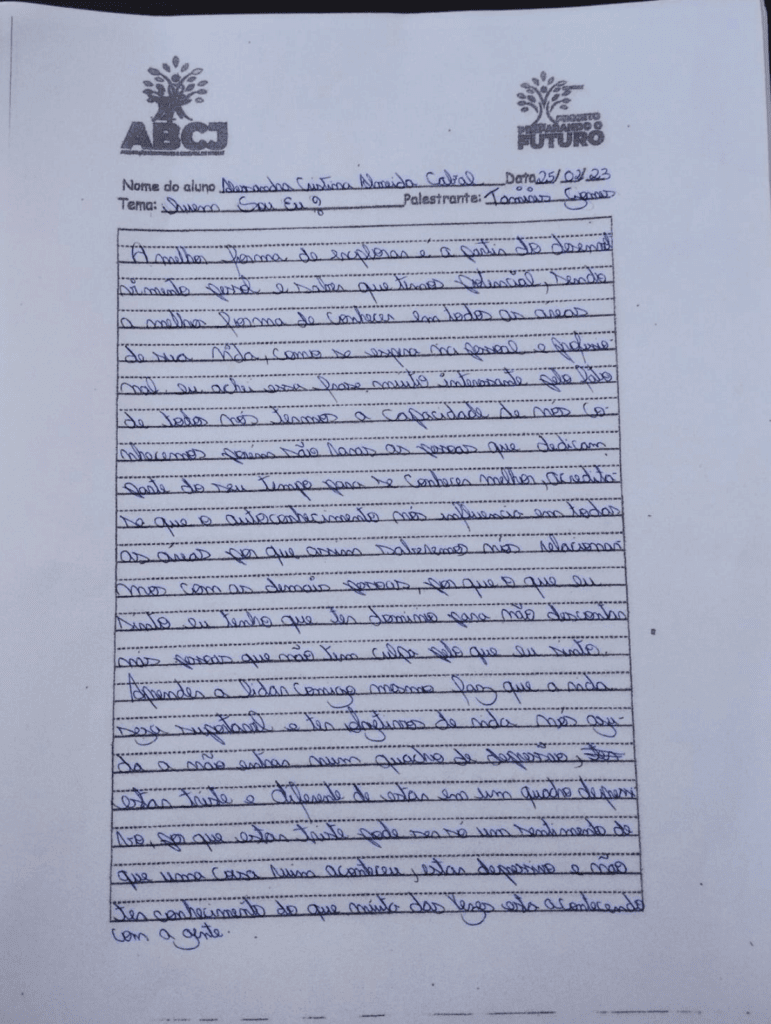 ABCJ
PROJETO
PREPARANDO O
FUTURO
Nome do aluno Alexsandra Cristina Almeida Cabral Data 25/02/23
Tema: Quem Sou Eu? Palestrante: Tamires Gomes
A melhor forma de explorar é a partir do desenvol
vimento pessoal e saber que temos potencial, sendo
a melhor forma de conhecer em todos as áreas
de sua vida, como se espira na pessoal e profissio
nal. eu achei essa frase muito interessante pelo fato
de todos nós termos a capacidade de nós co-
nhecemos porém são raras as pessoas que dedicam
parte do seu tempo para se conhecer melhor, acredita
se que o autoconhecimento nós influencia em todas
as áreas por que assim saberemos nós relacionar
mos com as demais pessoas, por que o que eu
sinto eu tenho que ter dominio para não descontar
nas pessoas que não tem culpa pelo que eu sinto.
Aprender a lidar comigo mesmo faz que a vida
seja supotavel e ter objetivos de vida nós aju-
da a não entrar num quadro de depressivo,
estar triste e diferente de estar em um quadro depressi
vo, por que estar triste pode ser só um sentimento de
que uma coisa ruim aconteceu, estar depressivo e não
ter conhecimento do que muita das vezes esta acontecendo
com a gente.